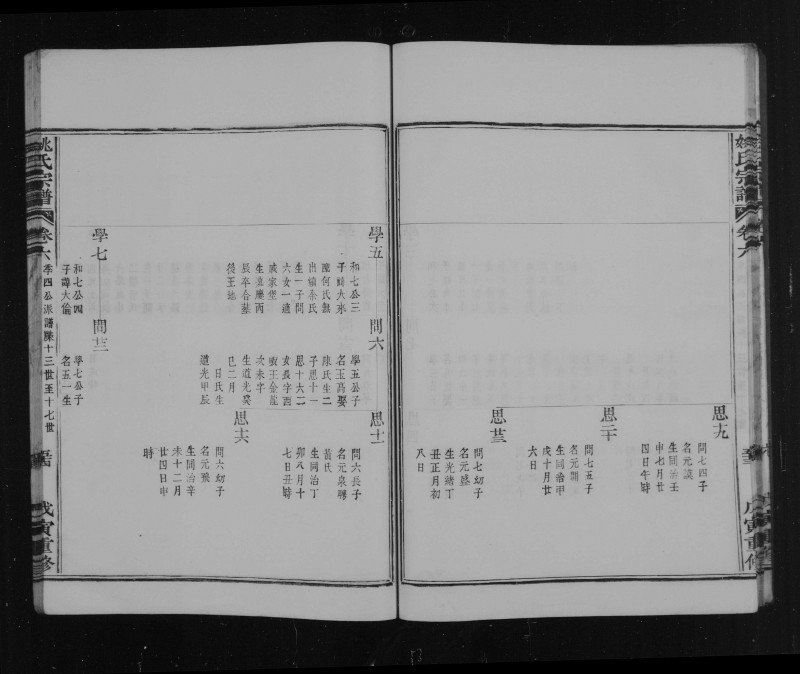 姚氏宗譜
卷六
戊寅重修
思十九
問七四子
名元漢
生同治壬
申七月廿
四日午時
思二十
問七五子
名元
生同治甲
戌十月廿
六日
思廿三
問七幼子
名元
生光緒丁
丑正月初
八日
學五
和七公三
子諱大來
陳何氏
出續余氏
生一子問
六女一適
家
生嘉慶丙
辰卒合墓
後王地
問六
學五公子
名玉高娶
陳氏生二
子思十一
思十六二
女長字西
王金龍
次未字
生道光癸
巳二月
日氏生
道光甲辰
思十一
問六長子
名元泉聘
黃氏
生同治丁
卯八月十
七日丑時
思十六
問六幼子
名元飛
生同治辛
未十二月
廿四日申
時
學七
和七公四
子諱大倫
問三
學七公子
名五一生
姚氏宗譜
卷六
季四公派譜系十三世至十七世
戊寅重修